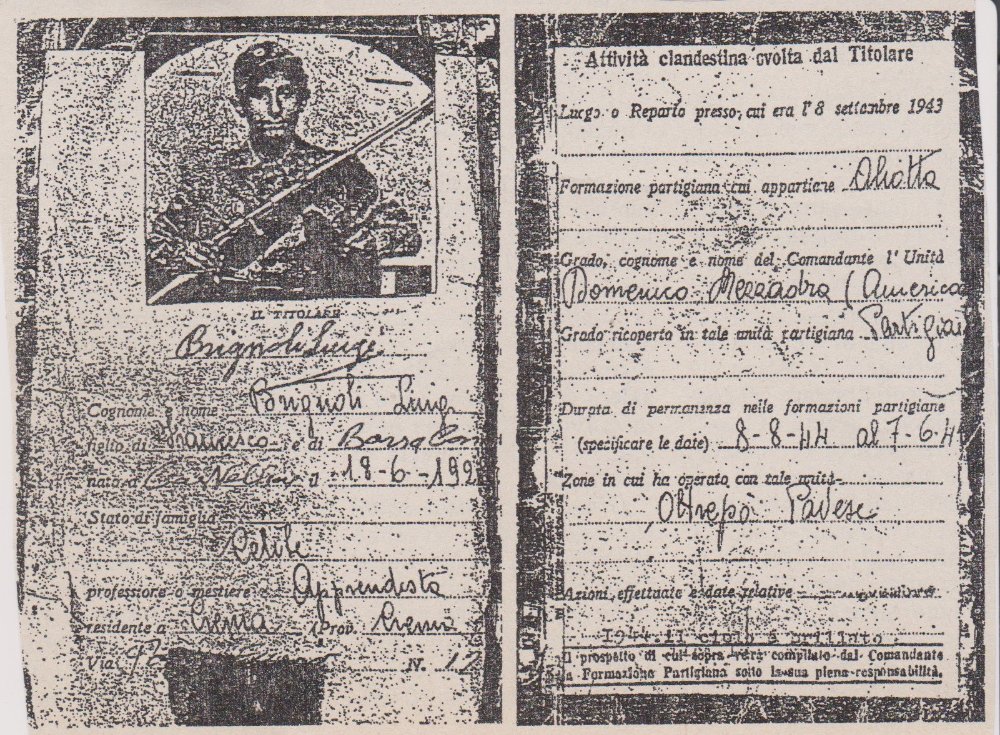 IL TITOLARE
Brignoli Luigi
Cognome e nome Brignoli Luigi
figlio di Francesco e di
nato a il 18-6-192
Stato di famiglia
Celibe
professione o mestiere Apprendista
residente a Crema (Prov. Crem
Via N. 17
Attività clandestina svolta dal Titolare
Luogo o Reparto presso cui era l'8 settembre 1943
Formazione partigiana cui appartiene Aliotta
Grado, cognome e nome del Comandante l'Unità
Domenico Mezzadra (America
Grado ricoperto in tale unità partigiana Partigian
Durata di permanenza nelle formazioni partigiane
(specificare le date) 8-8-44 al 7-6-4
Zone in cui ha operato con tale unità
Oltrepò Pavese
Azioni effettuate e date relative
Il prospetto di cui sopra verrà compilato dal Comandante
la Formazione Partigiana sotto la sua piena responsabilità.